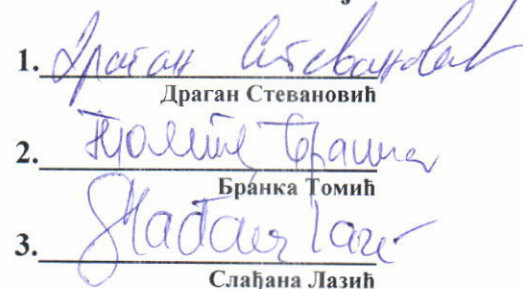 1. Драган Стевановић
Драган Стевановић
2. Томић Бранка
Бранка Томић
3. Слађана Лазић
Слађана Лазић